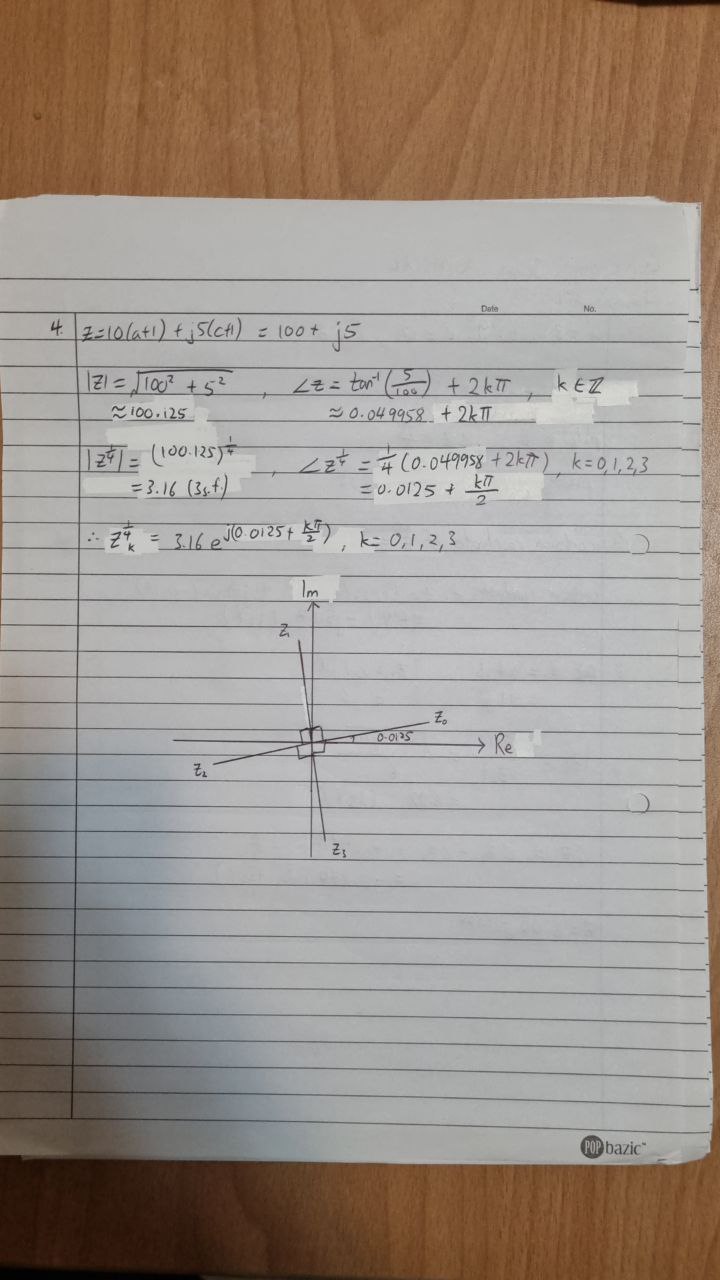 Date No.
4. z=10(a+1) + j5(c+1) = 100 + j5
|z| = √(100² + 5²) , ∠z = tan⁻¹(5/100) + 2kπ , k ∈ ℤ
≈ 100.125 ≈ 0.049958 + 2kπ
|z^(1/4)| = (100.125)^(1/4) , ∠z^(1/4) = 1/4 (0.049958 + 2kπ) , k = 0,1,2,3
= 3.16 (3s.f.) = 0.0125 + kπ/2
∴ z^(1/4)_k = 3.16 e^(j(0.0125 + kπ/2)) , k = 0, 1, 2, 3
Im
z₁
z₀
0.0125
Re
z₂
z₃
POP bazic™